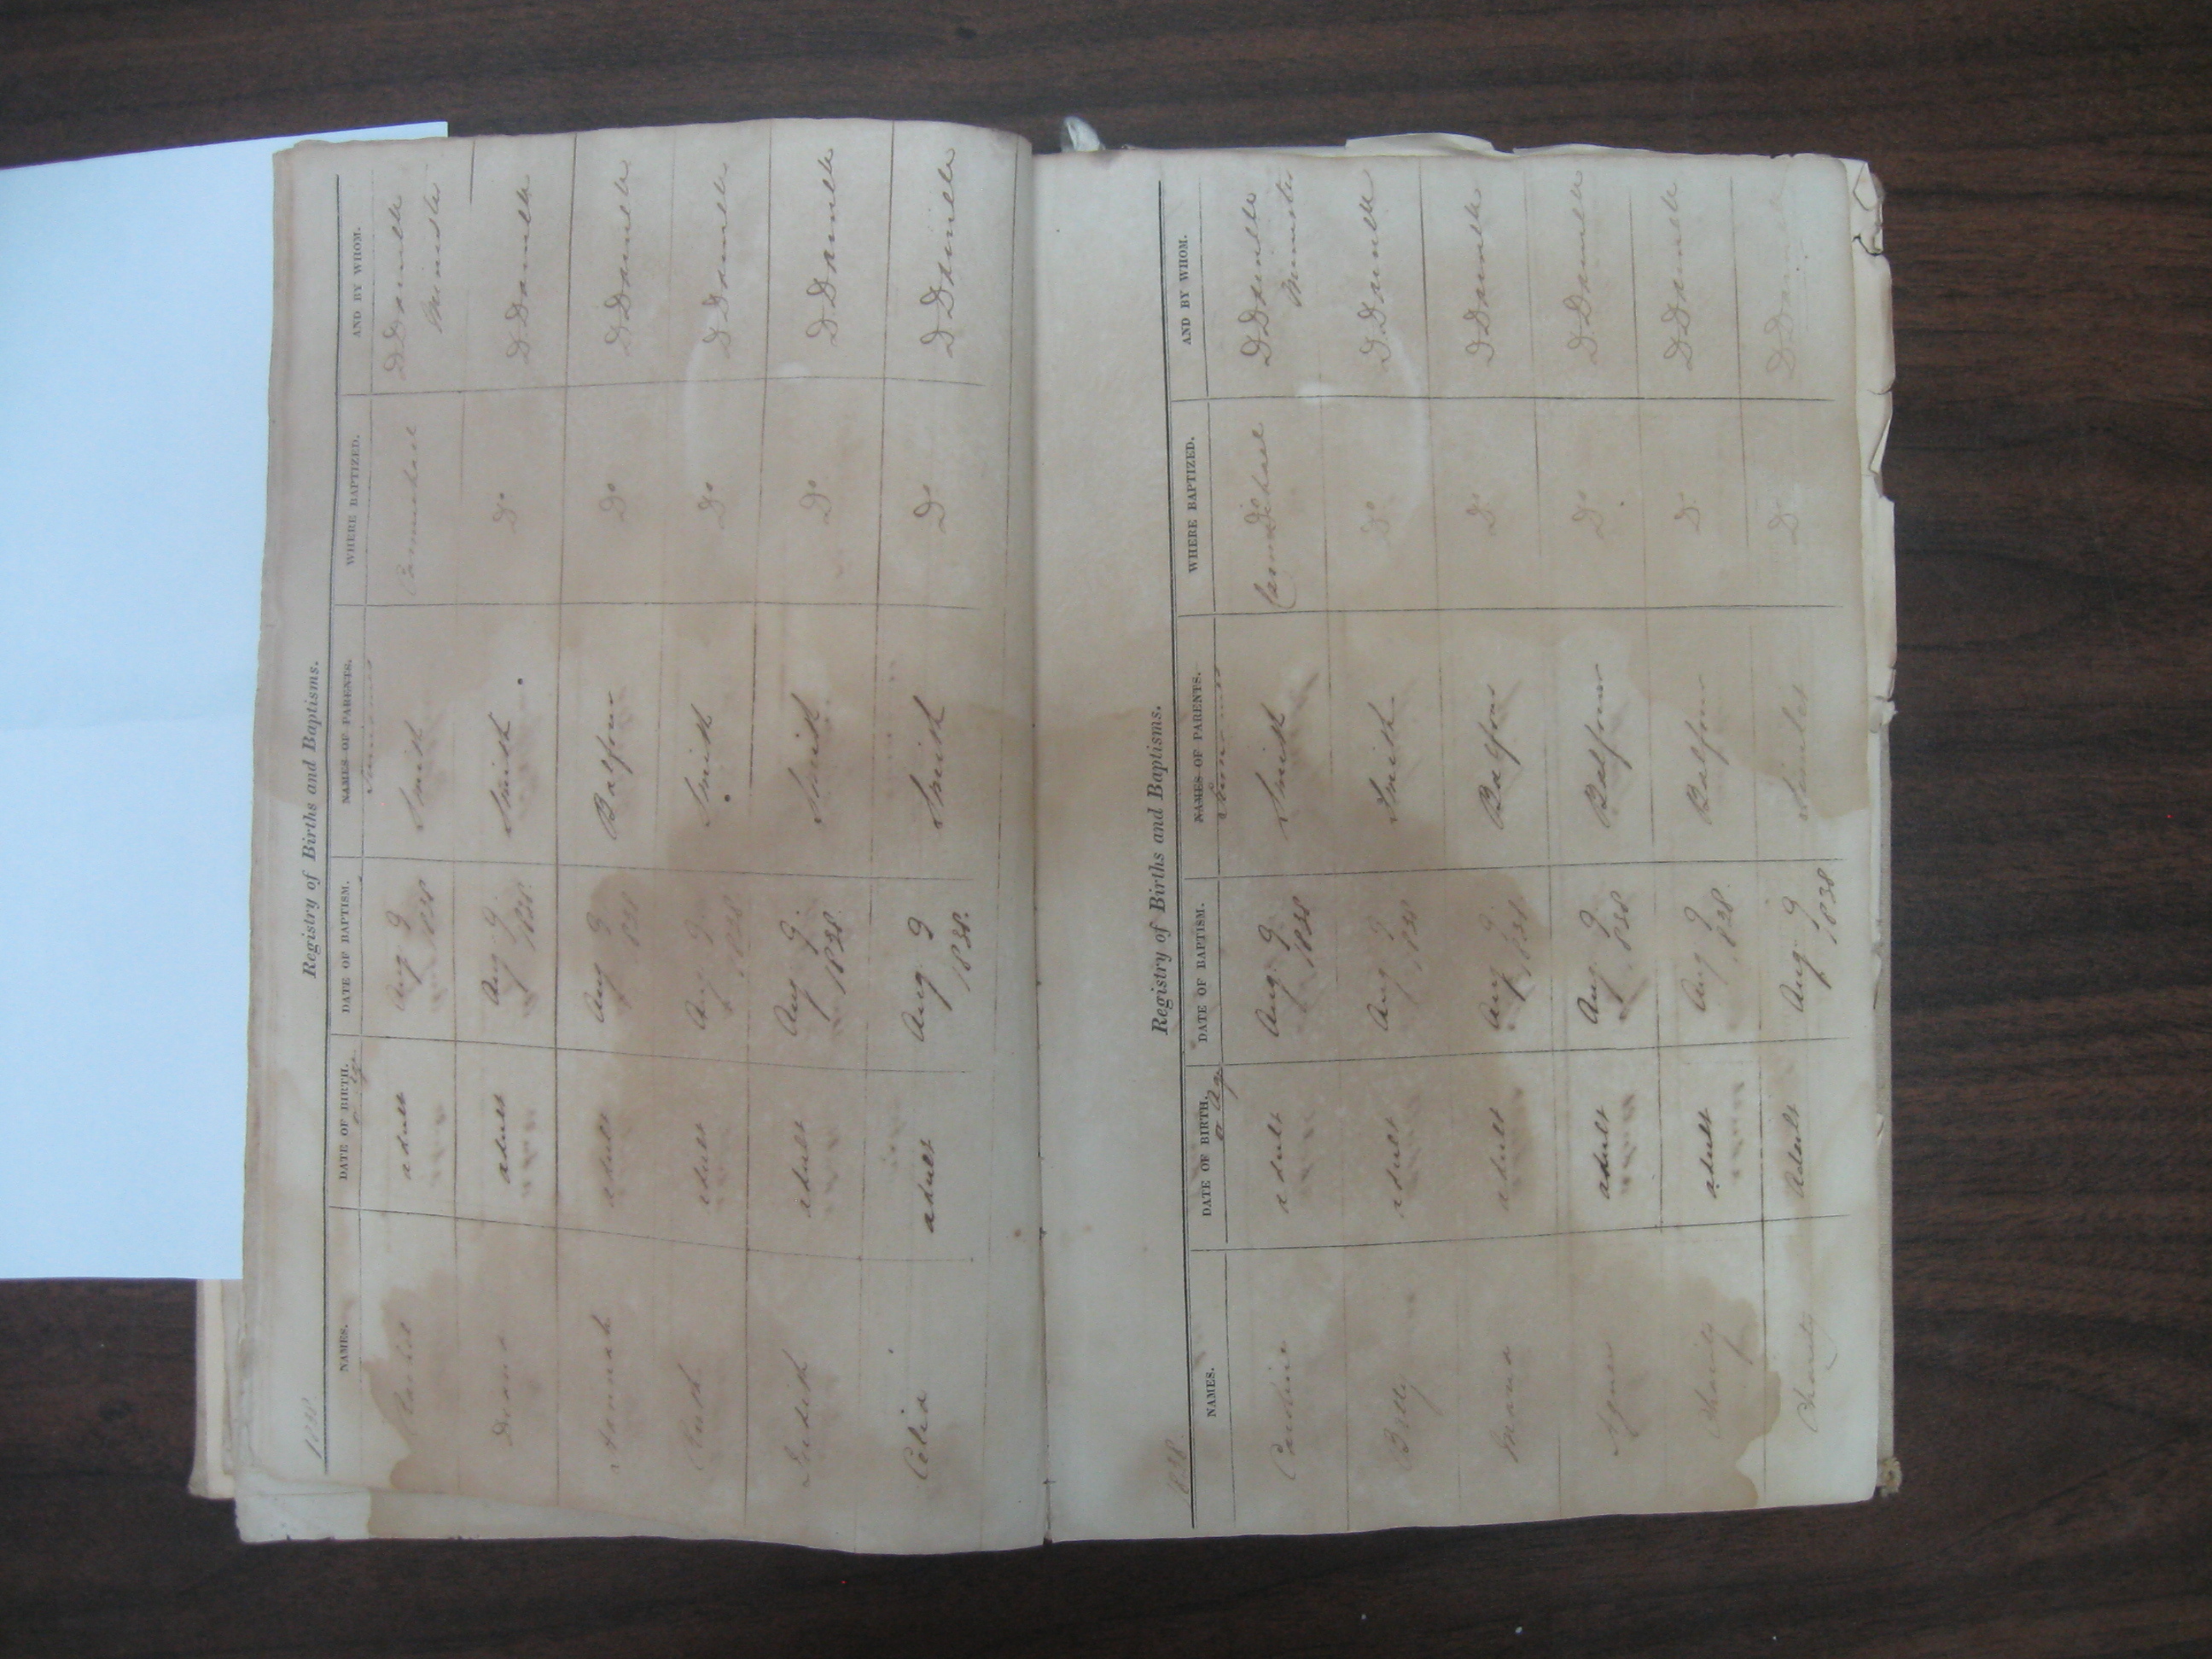 1838
Registry of Births and Baptisms.
NAMES. DATE OF BIRTH. DATE OF BAPTISM. NAMES OF PARENTS. WHERE BAPTIZED. AND BY WHOM.
or Age Surnames
Rachel adult Aug 9 1838 Smith Carmichael D Darnell Minister
Diana adult Aug. 9. 1838. Smith Do D Darnell
Hannah adult Aug 9 1838 Balfour Do D Darnell
Ruth adult Aug 9 1838 Smith Do D Darnell
Judith adult Aug. 9. 1838. Smith Do D. Darnell
Celia adult Aug. 9 1838. Smith Do D Darnell
1838.
Registry of Births and Baptisms.
NAMES. DATE OF BIRTH. DATE OF BAPTISM. NAMES OF PARENTS. WHERE BAPTIZED. AND BY WHOM.
or Age Surnames
Caroline adult Aug. 9 1838 Smith Carmichael D Darnell Minister
Betty adult Aug 9 1838 Smith Do D. Darnell
Maria adult Aug 9. 1838 Balfour Do D Darnell
Agnes adult Aug. 9 1838 Balfour Do D Darnell
Charity adult Aug 9 1838. Balfour Do D Darnell
Charity Adult Aug. 9 1838 Do D Darnell